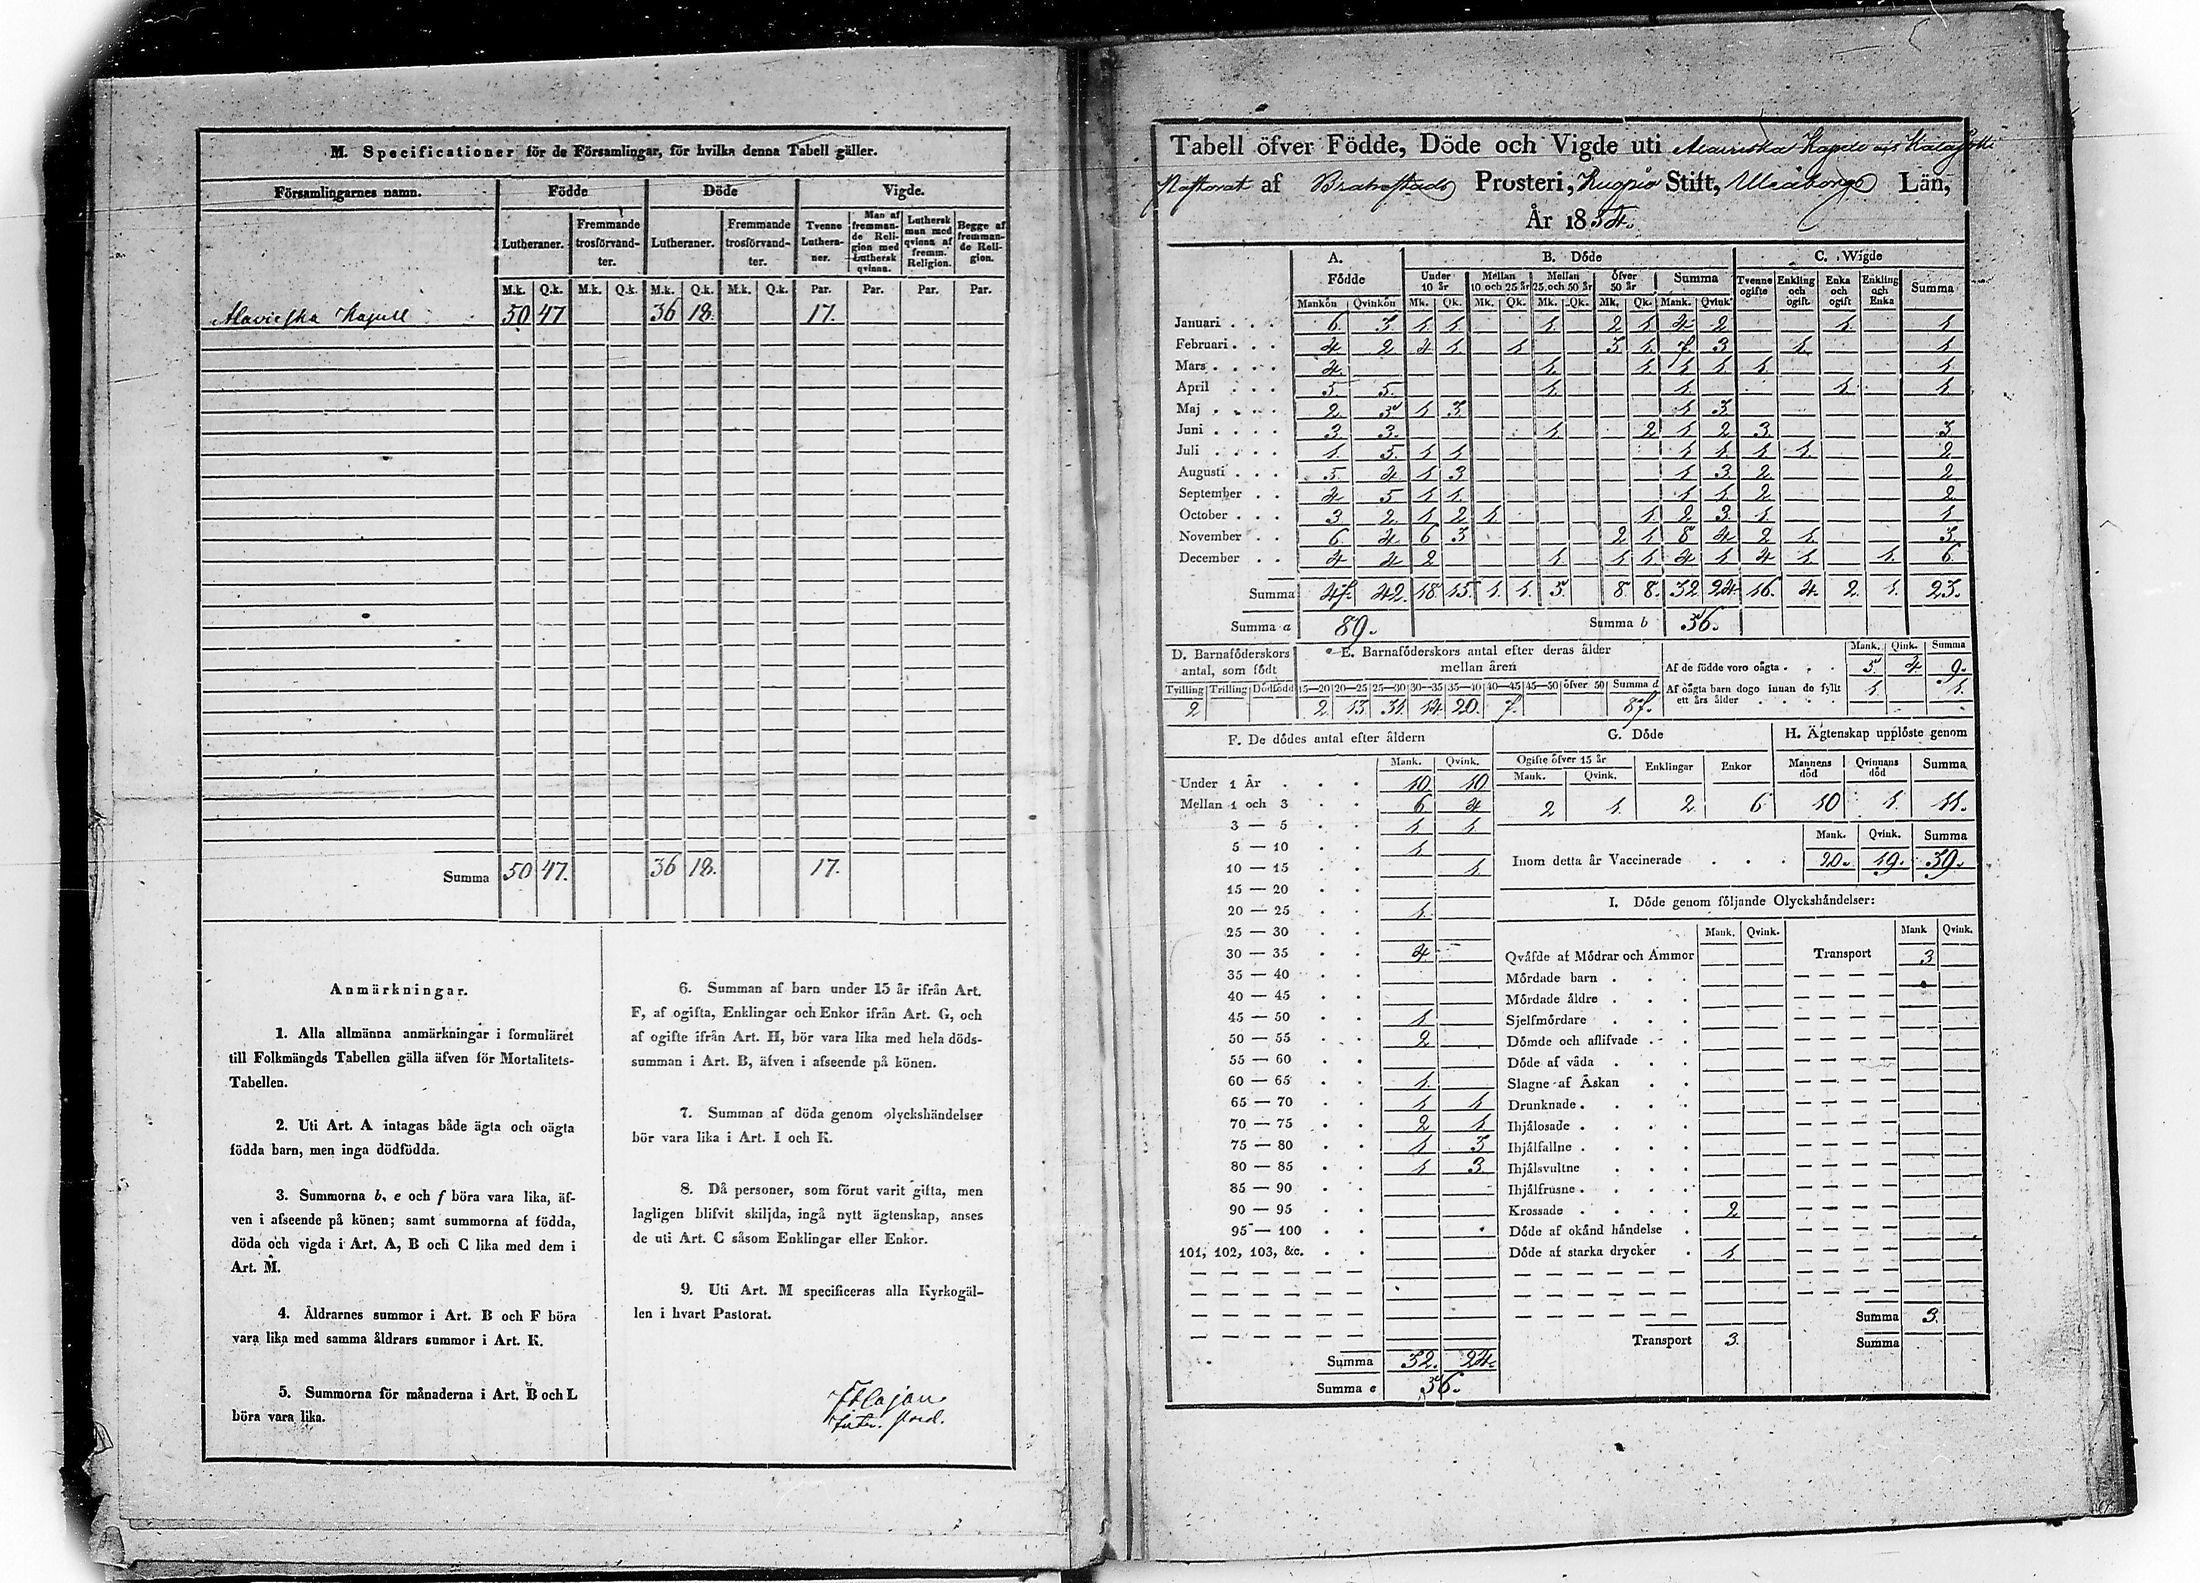 M. Specificationer för de Församlingar, för hvilka denna Tabell gäller.
Församlingarnes namn. Födde Döde Vigde.
Lutheraner. Fremmande trosförvandter. Lutheraner. Fremmande trosförvandter. Tvenne Lutheraner. Man af fremmande Religion med Luthersk qvinna. Luthersk man med qvinna af fremm. Religion. Begge af fremmande Religion.
M.k. Q.k. M.k. Q.k. M.k. Q.k. M.k. Q.k. Par. Par. Par. Par.
Alavieska Kapell 50 47 36 18. 17.
Summa 50 47. 36 18. 17.
Anmärkningar.
1. Alla allmänna anmärkningar i formuläret
till Folkmängds Tabellen gälla äfven för Mortalitets-
Tabellen.
2. Uti Art. A intagas både ägta och oägta
födda barn, men inga dödfödda.
3. Summorna b, e och f böra vara lika, äf-
ven i afseende på könen; samt summorna af födda,
döda och vigda i Art. A, B och C lika med dem i
Art. M.
4. Åldrarnes summor i Art. B och F böra
vara lika med samma åldrars summor i Art. K.
5. Summorna för månaderna i Art. B och L
böra vara lika.
6. Summan af barn under 15 år ifrån Art.
F, af ogifta, Enklingar och Enkor ifrån Art. G, och
af ogifte ifrån Art. H, bör vara lika med hela döds-
summan i Art. B, äfven i afseende på könen.
7. Summan af döda genom olyckshändelser
bör vara lika i Art. I och K.
8. Då personer, som förut varit gifta, men
lagligen blifvit skiljda, ingå nytt ägtenskap, anses
de uti Art. C såsom Enklingar eller Enkor.
9. Uti Art. M specificeras alla Kyrkogäl-
len i hvart Pastorat.
Tabell öfver Födde, Döde och Vigde uti Alavieska Kapell af Kalajoki
Pastorat af Brahestads Prosteri, Kuopio Stift, Uleåborgs Län,
År 1854.
A. Födde B. Döde C. Wigde
Under 10 år Mellan 10 och 25 år Mellan 25 och 50 år öfver 50 år Summa Tvenne ogifte Enkling och ogift. Enka och ogift Enkling och Enka Summa
Mankön Qvinkön Mk. Qk. Mk. Qk. Mk. Qk. Mk. Qk. Mank. Qvink.
Januari 6. 3 1 1 1. 2 1 4 2 1. 1
Februari 4 2 4 1. 1 3 1. 7. 3 1. 1
Mars 4. 1 1 1 1 1 1
April 5. 5. 1. 1. 1 1
Maj 2 3 1 3. 1 3
Juni 3 3. 1 2 1 2 3. 3
Juli 1. 5. 1 1 1 1. 1 1. 2
Augusti 5 4 1 3 1 3 2 2
September 4 5 1 1. 1 1 2 2
October 3 2 1 2 1 1 2 3 1 1
November 6 4 6 3 2 1 8 4 2 1 3
December 4 4 2 1 1 1 4 1 4 1 1. 6
Summa 47. 42. 18. 15. 1. 1. 5. 8. 8. 32 24. 16. 4. 2. 1. 23.
Summa a 89. Summa b 56.
D. Barnaföderskors antal, som födt
E. Barnaföderskors antal efter deras ålder mellan åren
Mank. Qink. Summa
Af de födde voro oägta 5 4 9.
Af oägta barn dogo innan de fyllt ett års ålder 1 1.
Tvilling Trilling Dödfödd 15—20 20—25 25—30 30—35 35—40 40—45 45—50 öfver 50 Summa d
2 2. 13 31. 14. 20. 7. 87.
F. De dödes antal efter åldern
Mank. Qvink.
Under 1 År 10 10
Mellan 1 och 3 6 4
3 — 5 1 1
5 — 10 1
10 — 15 1.
15 — 20
20 — 25 1.
25 — 30
30 — 35 4
35 — 40
40 — 45
45 — 50 1
50 — 55 2
55 — 60
60 — 65 1.
65 — 70 1 1
70 — 75 2 1
75 — 80 1 3
80 — 85 1 3
85 — 90
90 — 95
95 — 100
101, 102, 103, &c.
Summa 32. 24.
Summa e 56.
G. Döde
Ogifte öfver 15 år Enklingar Enkor
Mank. Qvink.
2 1. 2 6
H. Ägtenskap upplöste genom
Mannens död Qvinnans död Summa
10 1. 11.
Mank. Qvink. Summa
Inom detta år Vaccinerade 20. 19. 39.
I. Döde genom följande Olyckshändelser:
Mank. Qvink. Mank Qvink.
Qväfde af Mödrar och Ammor Transport 3
Mördade barn
Mördade äldre
Sjelfmördare
Dömde och aflifvade
Döde af våda
Slagne af Åskan
Drunknade
Ihjälosade
Ihjälfallne
Ihjälsvultne
Ihjälfrusne
Krossade 2
Döde af okänd händelse
Döde af starka drycker 1
Summa 3.
Transport 3. Summa